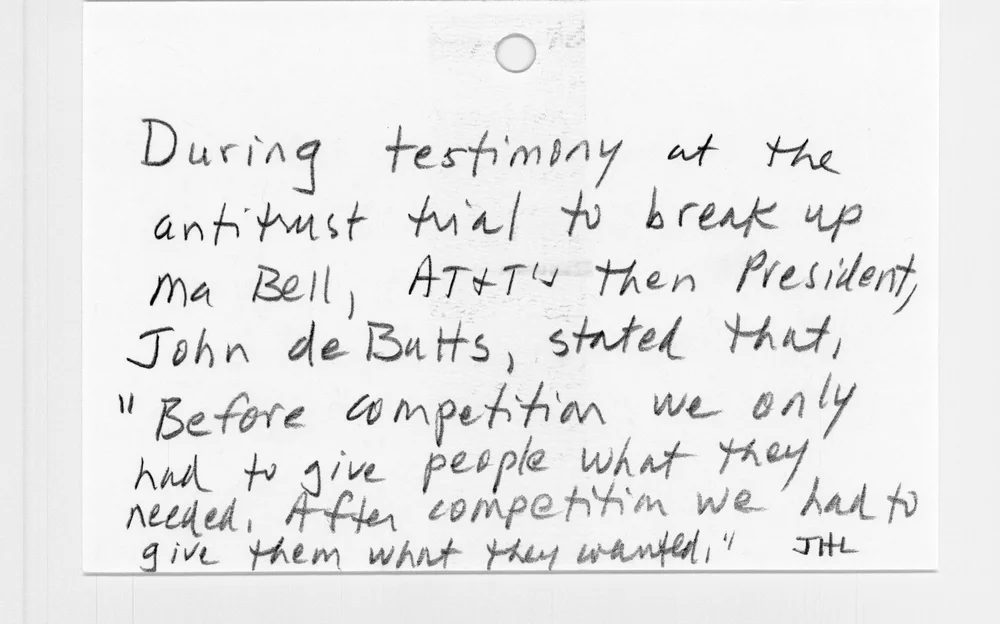 During testimony at the
antitrust trial to break up
Ma Bell, AT&T's then President,
John deButts, stated that,
"Before competition we only
had to give people what they
needed. After competition we had to
give them what they wanted." JHL